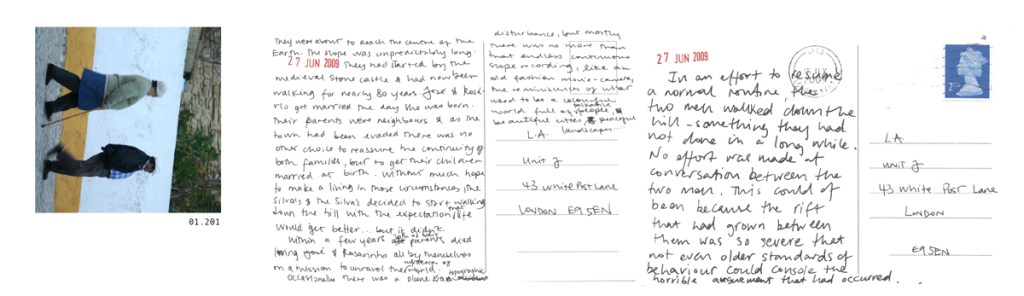 01.201
They were about to reach the centre of the
Earth. The slope was unpredictably long.
27 JUN 2009 They had started by the
medieval stone castle & had now been
walking for nearly 80 years. José & Rosa-
rio got married the day she was born.
Their parents were neighbours & as the
town had been evaded there was no
other choice to reassure the continuity of
both families, but to get their children
married at birth. Without much hope
to make a living in those circumstances, the
Silvas & the Silva's decided to start walking
down the hill with the expectation that life
would get better... but it didn't.
Within a few years both of their parents died
leaving José & Rosarinho all by themselves
on a mission to unravel the world.
Occasionally there was a
disturbance, but mostly
there was no more than
that endless continuous
slope recording, like an
old fashion movie-camera,
the reminiscens of what
used to be a colourful
world full of talkative people,
beautiful cities & peaceful
landscapes.
L.A.
Unit J
43 White Post Lane
LONDON E9 5EN
27 JUN 2009
In an effort to resume
a normal routine the
two men walked down the
hill - something they had
not done in a long while.
No effort was made at
conversation between the
two men. This could of
been because the rift
that had grown between
them was so severe that
not even older standards of
behaviour could console the
horrible arguement that had occurred.
L.A.
Unit J
43 White Post Lane
LONDON
E9 5EN